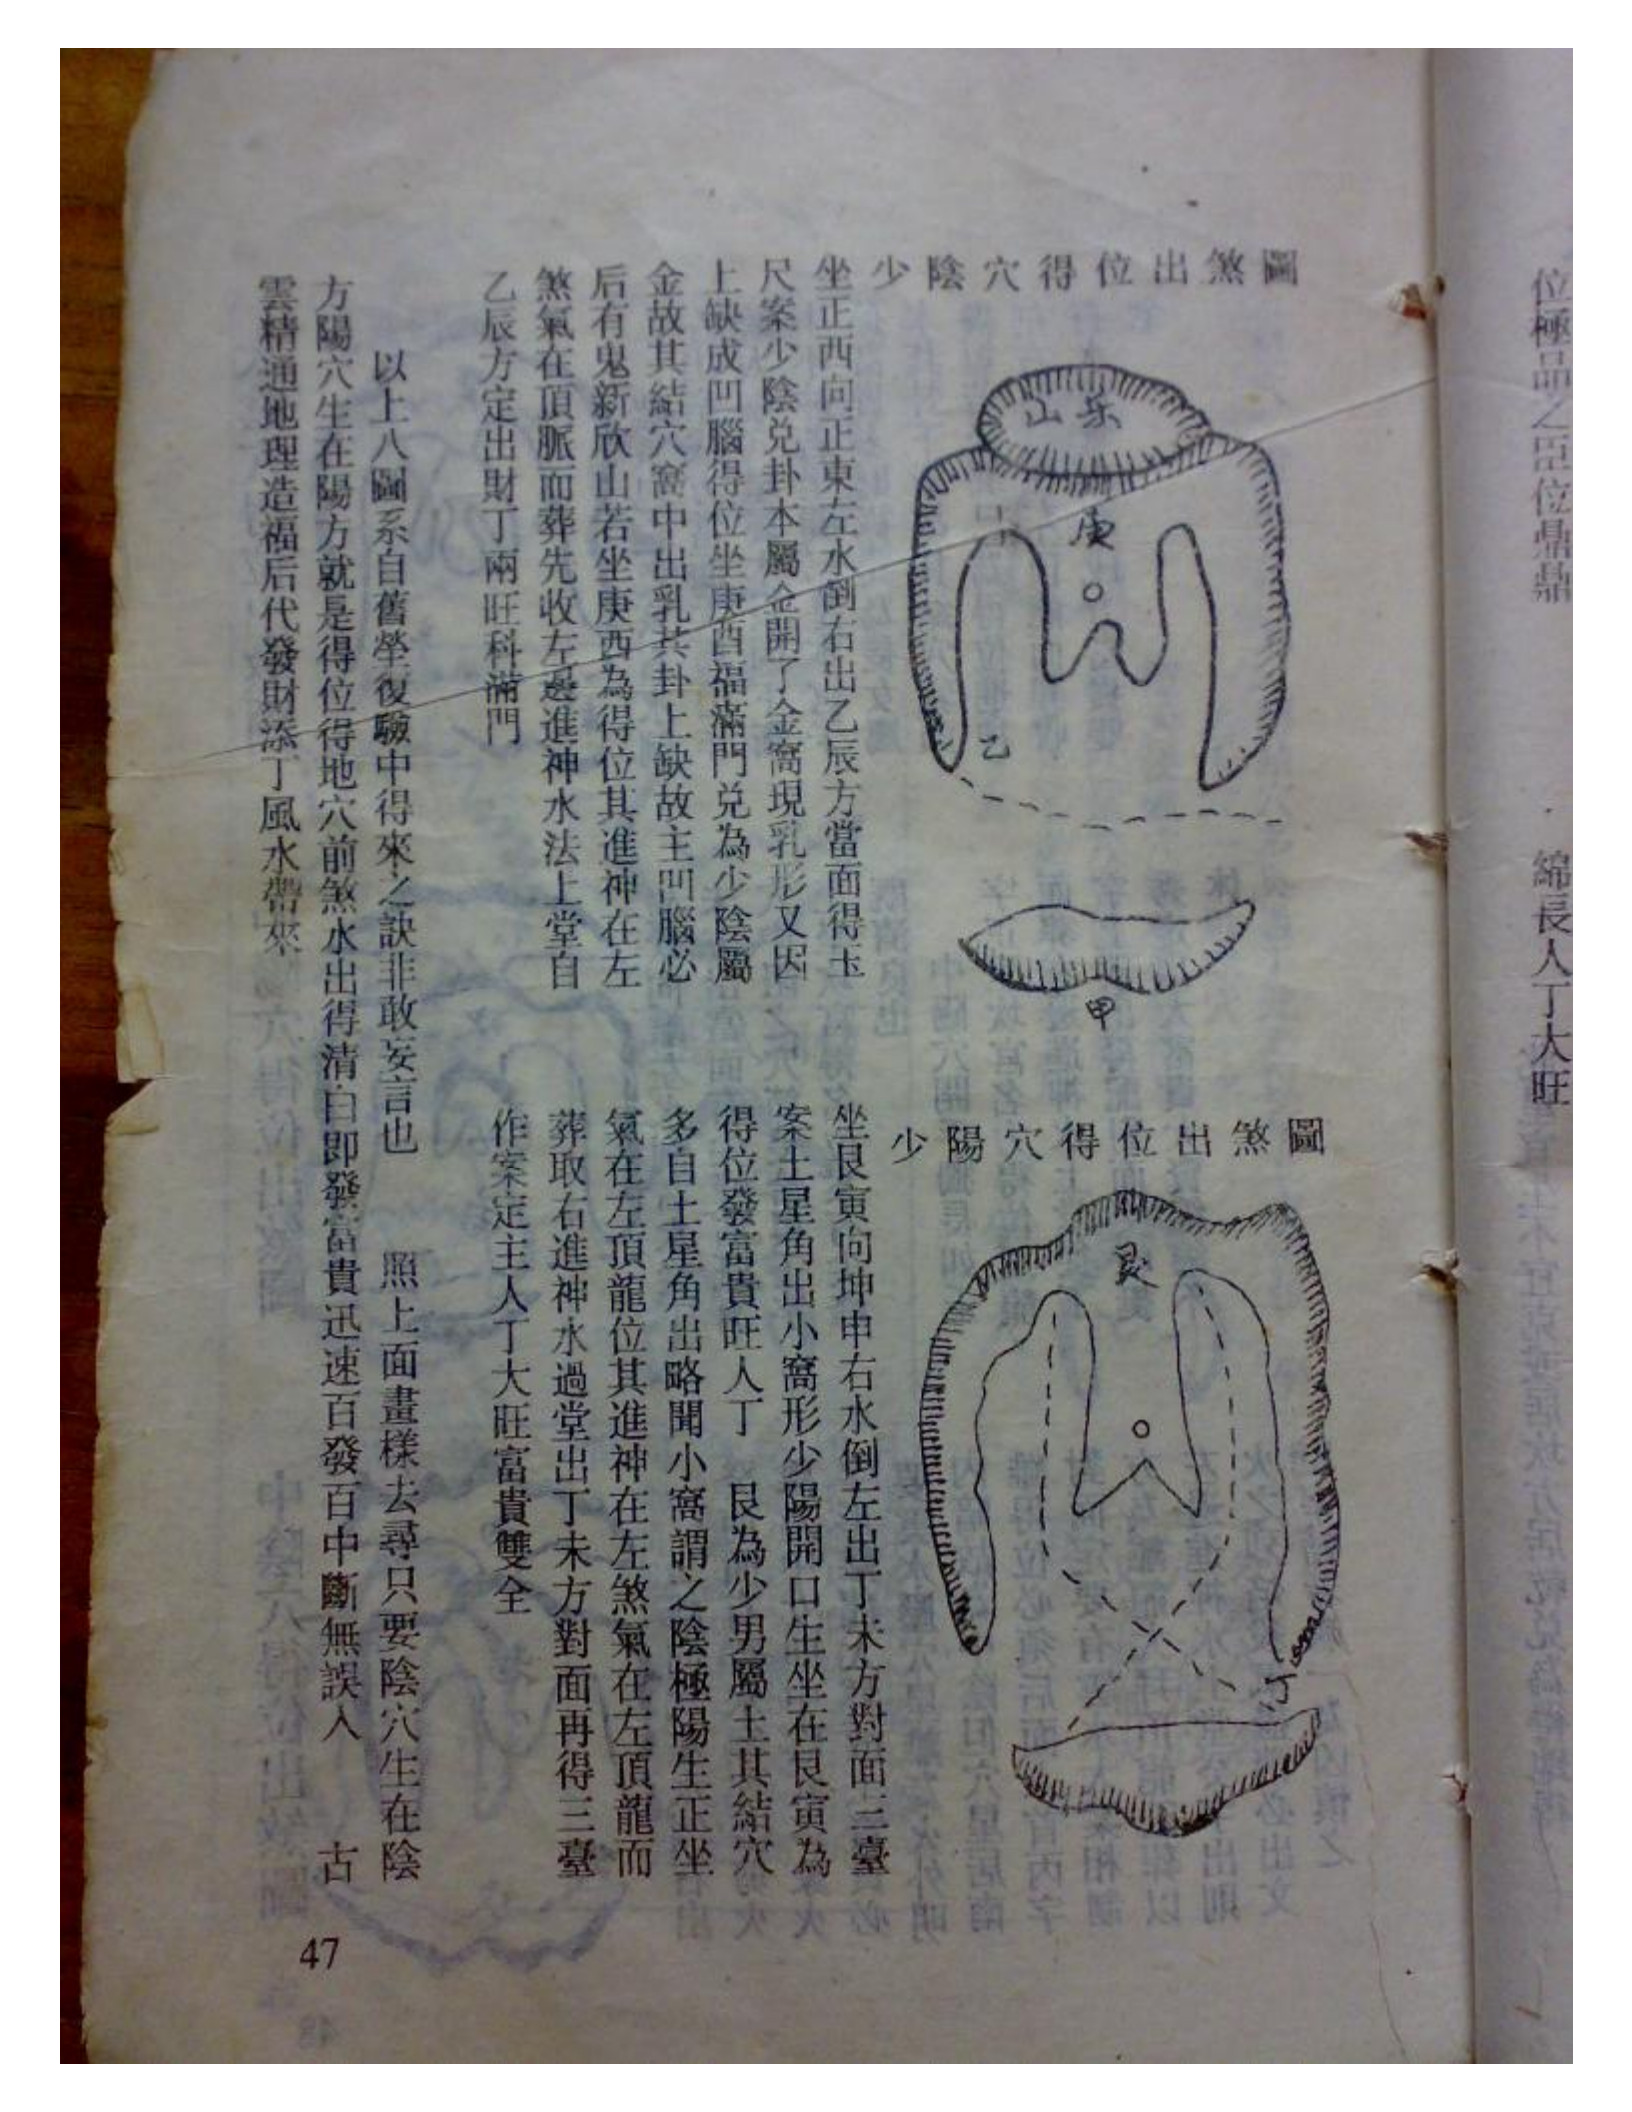 少陰穴得位出煞圖
山乐
庚
乙
甲
坐正西向正東左水倒右出乙辰方當面得玉
尺案少陰兌卦本屬金開了金窩現乳形又因
上缺成凹腦得位坐庚酉福滿門兌為少陰屬
金故其結穴窩中出乳其卦上缺故主凹腦必
后有鬼新欣山若坐庚西為得位其進神在左
煞氣在頂脈而葬先收左邊進神水法上堂自
乙辰方定出財丁兩旺科滿門
少陽穴得位出煞圖
艮
丁
坐艮寅向坤申右水倒左出丁未方對面三臺
案土星角出小窩形少陽開口生坐在艮寅為
得位發富貴旺人丁　艮為少男屬土其結穴
多自土星角出略開小窩謂之陰極陽生正坐
氣在左頂龍位其進神在左煞氣在左頂龍而
葬取右進神水過堂出丁未方對面再得三臺
作案定主人丁大旺富貴雙全
以上八圖系自舊塋復驗中得來之訣非敢妄言也　照上面畫樣去尋只要陰穴生在陰
方陽穴生在陽方就是得位得地穴前煞水出得清白即發富貴迅速百發百中斷無誤人　古
雲精通地理造福后代發財添丁風水帶來
47
位極品之臣位鼎鼎
綿長人丁大旺